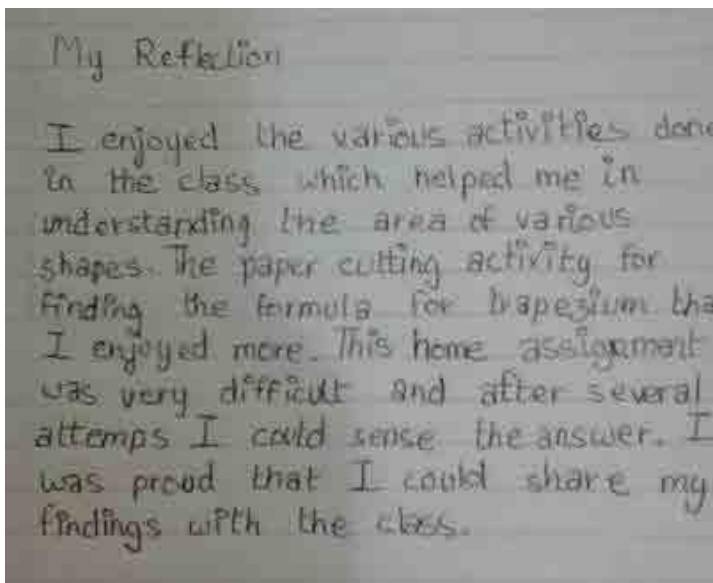 My Reflection
I enjoyed the various activities done
in the class which helped me in
understanding the area of various
shapes. The paper cutting activity for
finding the formula for trapezium tha
I enjoyed more. This home assignment
was very difficult and after several
attemps I could sense the answer. I
was proud that I could share my
findings with the class.